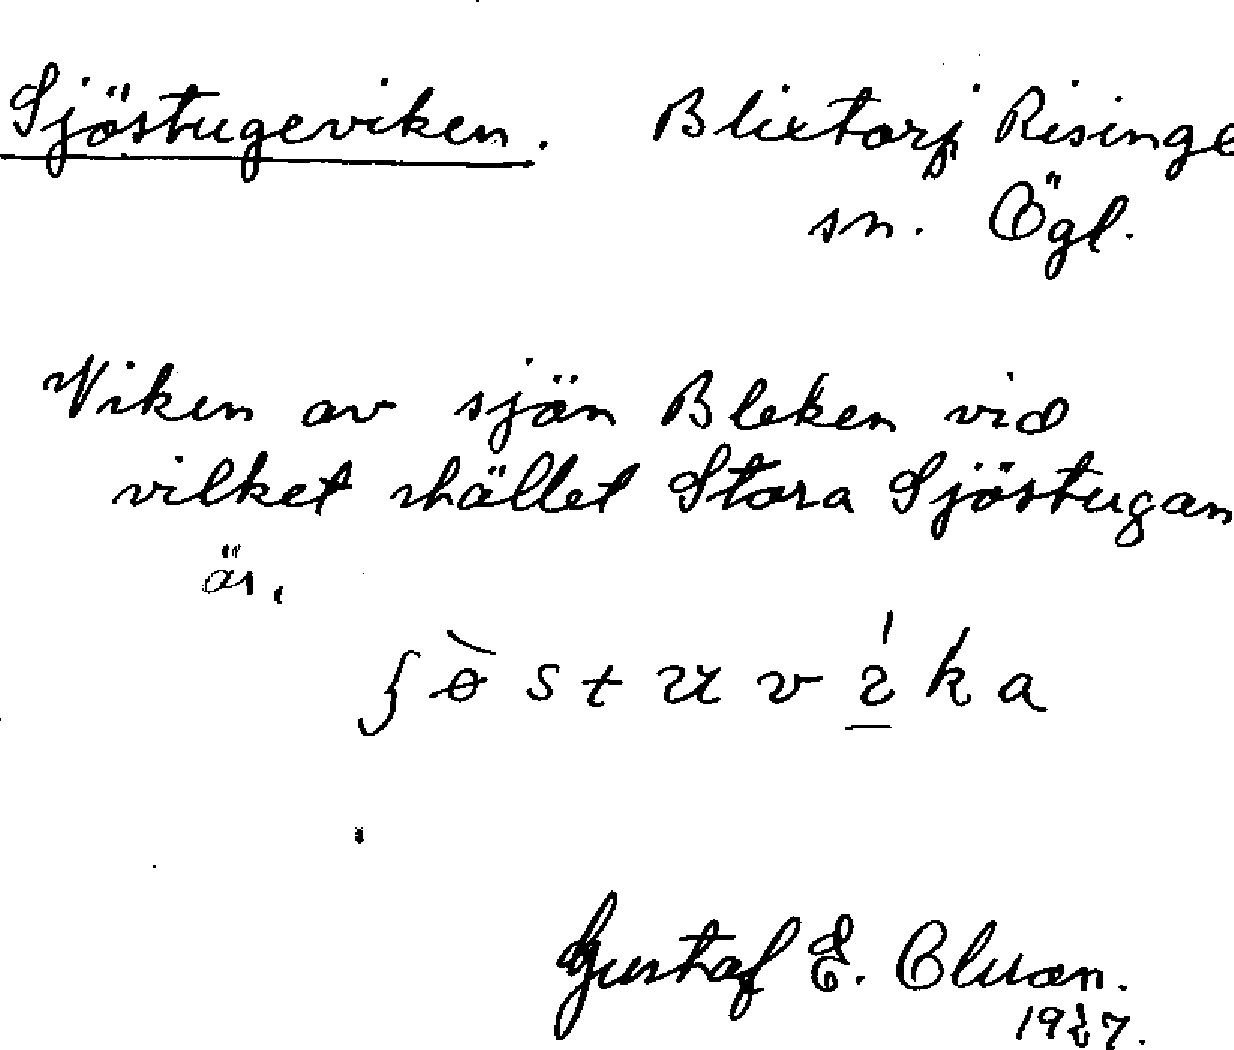 Sjöstugeviken. Blixtorp Risinge
sn. Ögl.
Viken av sjön Bleken vid
vilket stället Stora Sjöstugan
är.
ʃøstuvika
Gustaf E.
1927.